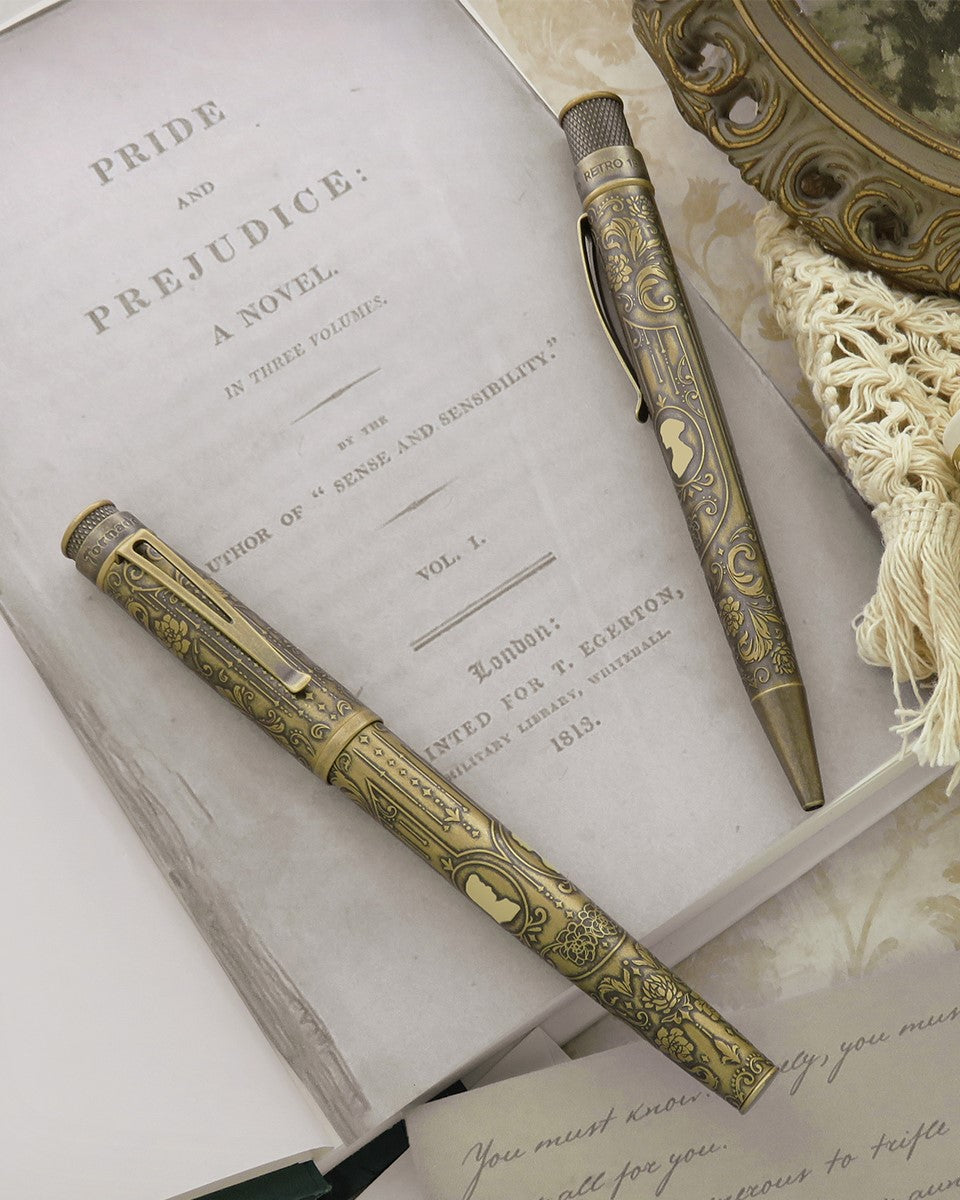 PRIDE
AND
PREJUDICE:
A NOVEL.
IN THREE VOLUMES.
BY THE
UTHOR OF “ SENSE AND SENSIBILITY.”
VOL. I.
London:
INTED FOR T. EGERTON,
MILITARY LIBRARY, WHITEHALL.
1813.
RETRO
You must know. ely, you must
all for you.
erous to trifle